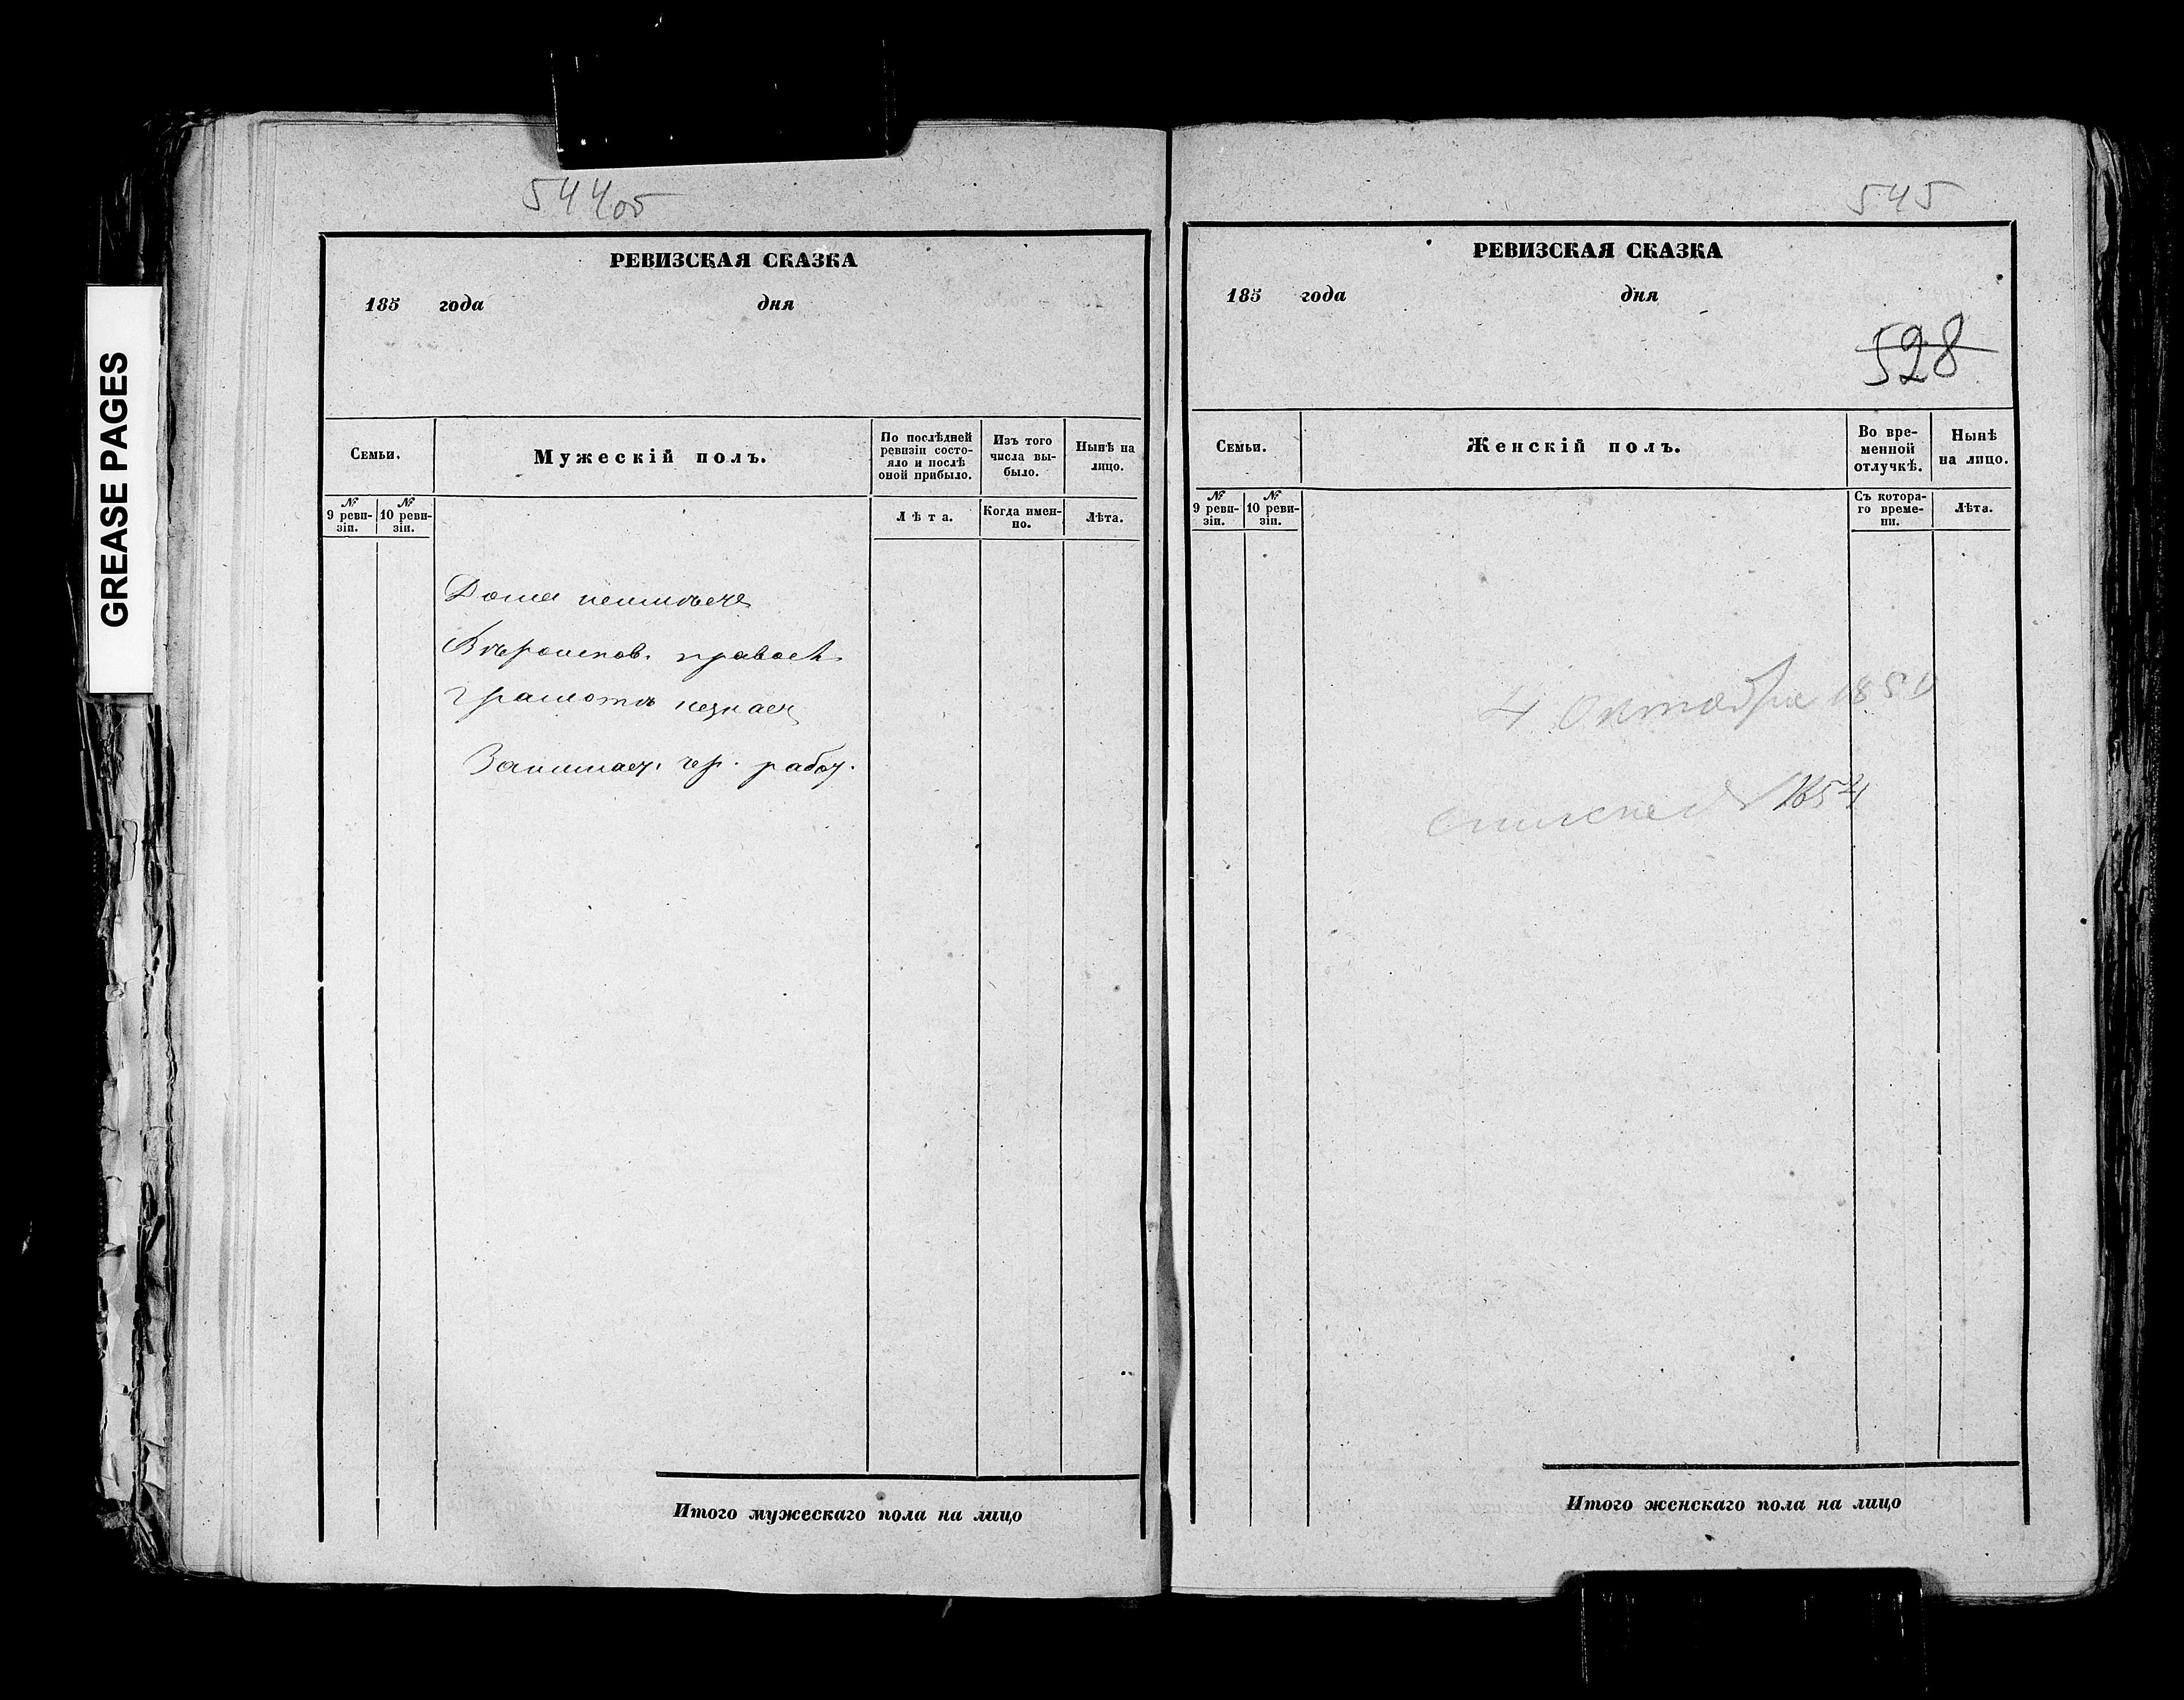 GREASE PAGES
544об
РЕВИЗСКАЯ СКАЗКА
185 года дня
Семьи.
Мужескій полъ.
По послѣдней ревизіи состо-
яло и послѣ
оной прибыло.
Изъ того
числа вы-
было.
Нынѣ на
лицо.
№
9 реви-
зіи.
№
10 реви-
зіи.
Лѣта.
Когда имен-
но.
Лѣта.
Дома неимѣетъ
Вѣроисков. правосл.
Грамотѣ незнаетъ
Занимает. чер. работ.
Итого мужескаго пола на лицо
545
РЕВИЗСКАЯ СКАЗКА
185 года дня
528
Семьи.
Женскій полъ.
Во вре-
менной
отлучкѣ.
Нынѣ
на лицо.
№
9 реви-
зіи.
№
10 реви-
зіи.
Съ котора-
го време-
ни.
Лѣта.
4 Октября
1854
Итого женскаго пола на лицо